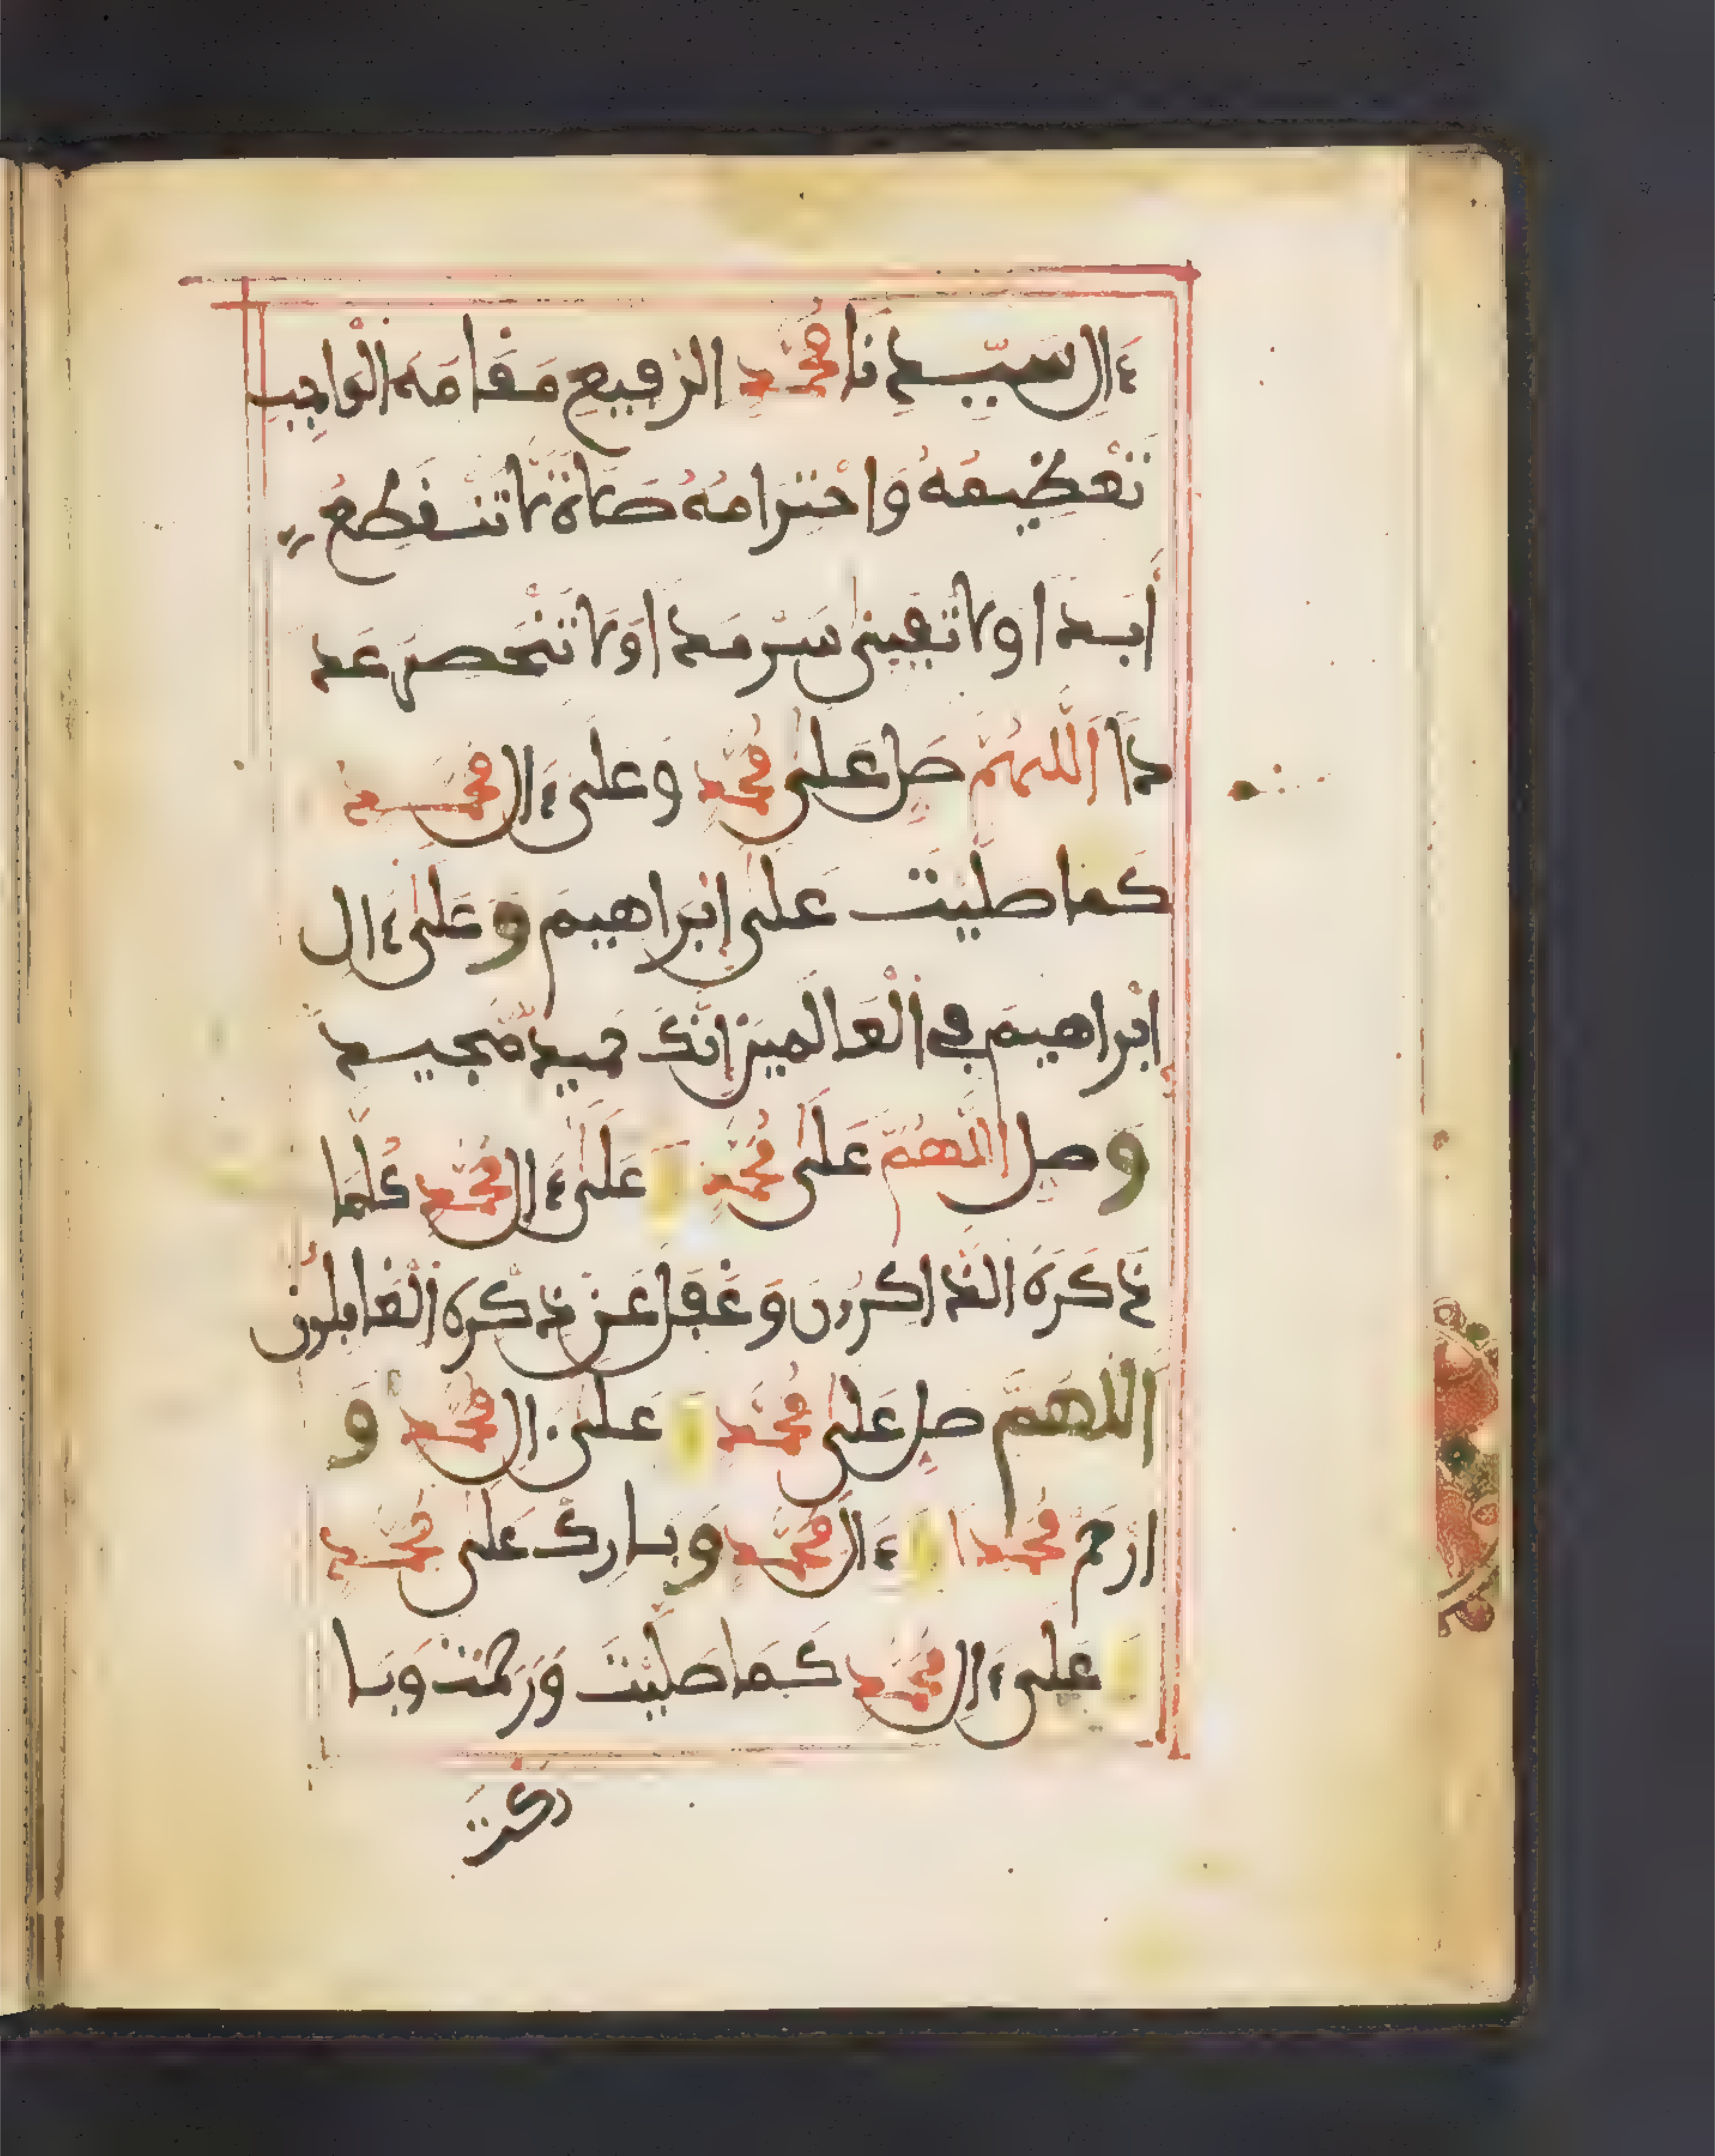 ءال سيدنا محمد الرفيع مقامه الواجب
تعظيمه واحترامه صلاة لا تنقطع
أبدا ولا تفنى سرمدا ولا تنحصر عد
دا اللهم صل على محمد وعلى ءال محمد
كما صليت على ابراهيم وعلى ءال
ابراهيم في العالمين انك حميد مجيد
وصل اللهم على محمد و على ءال محمد كلما
ذكره الذاكرون وغفل عن ذكره الغافلون
اللهم صل على محمد و على ءال محمد و
ارحم محمدا و ءال محمد وبارك على محمد
و على ءال محمد كما صليت ورحمت وبا
ركت